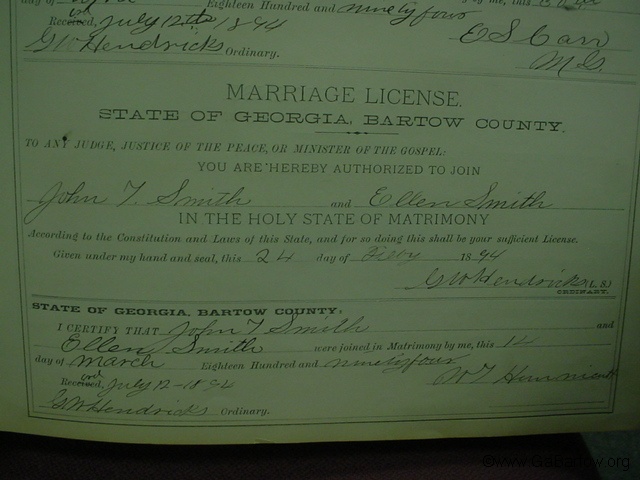 day of Eighteen Hundred and ninetyfour by me, this
Received, July 12th 1894 E S Carr
GW Hendricks Ordinary. M.G.
MARRIAGE LICENSE.
STATE OF GEORGIA, BARTOW COUNTY.
TO ANY JUDGE, JUSTICE OF THE PEACE, OR MINISTER OF THE GOSPEL:
YOU ARE HEREBY AUTHORIZED TO JOIN
John T. Smith and Ellen Smith
IN THE HOLY STATE OF MATRIMONY
According to the Constitution and Laws of this State, and for so doing this shall be your sufficient License.
Given under my hand and seal, this 24 day of Feby 1894
GW Hendricks (L.S.)
ORDINARY.
STATE OF GEORGIA, BARTOW COUNTY:
I CERTIFY THAT John T Smith and
Ellen Smith were joined in Matrimony by me, this 14
day of March Eighteen Hundred and ninetyfour
Received, July 12-1894 W T
GW Hendricks Ordinary.
©www.GaBartow.org